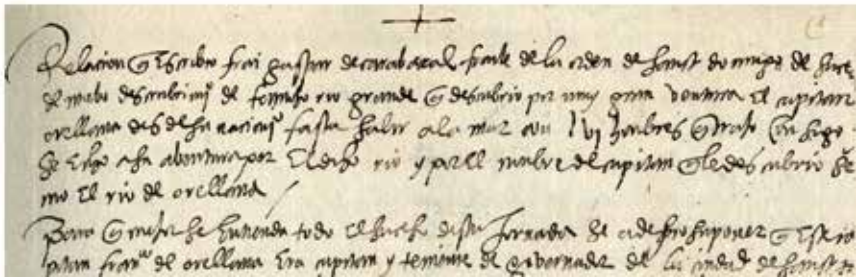 Relacion q escribio frai gaspar de carabajal fraile de la orden de sancto domingo de
del nuebo descubrimj° de famoso rio grande q descubrio por muy gran bentura el capitan
orellana desde su nacimj° fasta salir a la mar con lvij honbres q traxo consigo
se echo a su abentura por el dcho rio y por el nonbre del capitan q le descubrio se
mo el rio de orellana
Para q mejor se entienda todo el suceso desta jornada se a de presuponer q este ca
pitan fran^co de orellana era capitan y teniente de governador de la ciudad de sanct